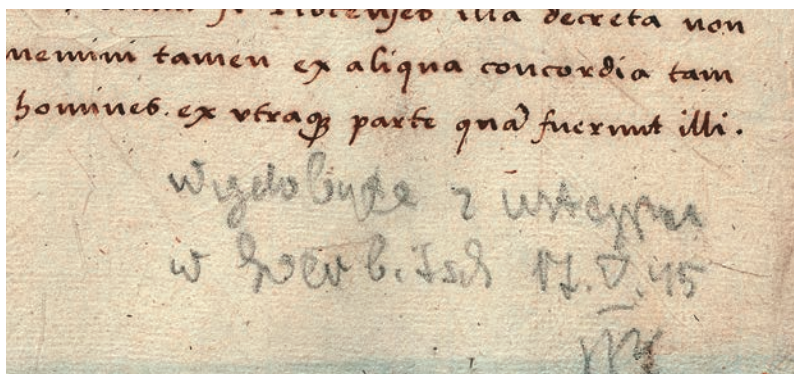 illa decreta non
nemini tamen ex aliqua concordia tam
homines. ex vtraqꝫ parte quā fuerunt illi.
wydobyte z
w b. 17.V.45